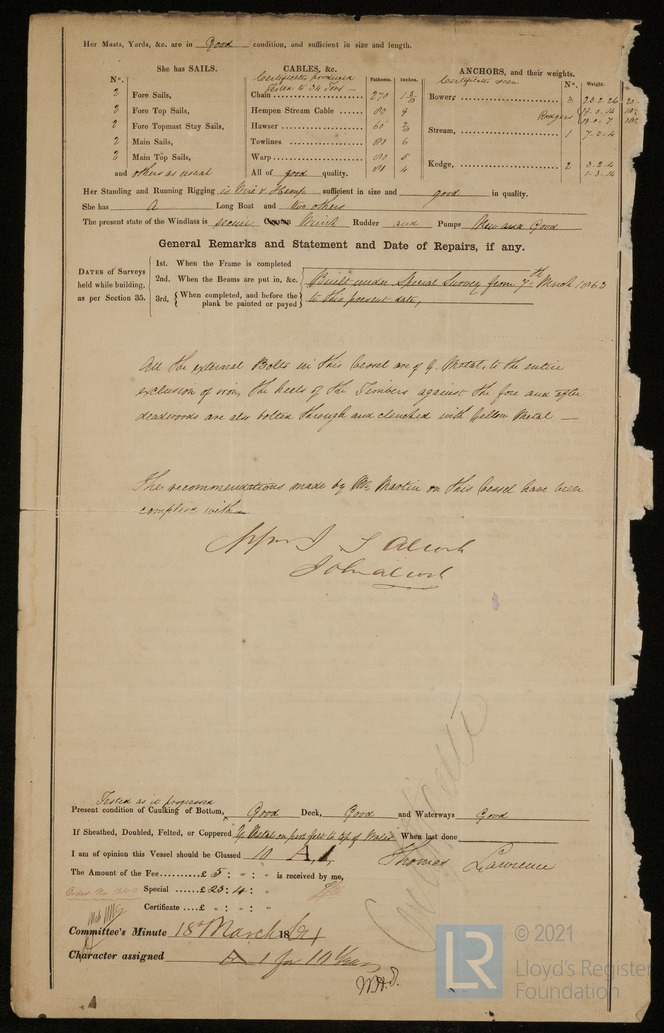 Her Masts, Yards, &c. are in Good condition, and sufficient in size and length.
She has SAILS.
CABLES, &c.
ANCHORS, and their weights.
N°.
Certificates produced
Tested to 34 Tons
Fathoms. Inches.
Certificates seen
N°. Weight.
2 Fore Sails,
2 Fore Top Sails,
2 Fore Topmast Stay Sails,
2 Main Sails,
2 Main Top Sails,
and others as usual
Chain 270
Hempen Stream Cable 80 9
Hawser 60
Towlines 80 6
Warp 80 5
80 4
All of good quality.
Bowers 3
Stream, 1 7-0-4
Kedge, 2 3-2-4
1-3-14
Her Standing and Running Rigging is Wire & Hemp sufficient in size and good in quality.
She has A Long Boat and two others
The present state of the Windlass is secure Capstan Winch Rudder and Pumps New and Good
General Remarks and Statement and Date of Repairs, if any.
DATES of Surveys held while building, as per Section 35.
1st. When the Frame is completed
2nd. When the Beams are put in, &c.
3rd. { When completed, and before the plank be painted or payed }
Built under Special Survey from 7th March 1863
to this present date,
All the external Bolts in this Vessel are of Y. Metal, to the entire
exclusion of iron, the heels of the Timbers against the fore and after
deadwoods are also bolted through and clenched with Yellow Metal —
The recommendations made by Mr. Martin on this Vessel have been
complied with
J Alcock
John Alcock
Tested as it progressed
Present condition of Caulking of Bottom, Good Deck, Good and Waterways Good
If Sheathed, Doubled, Felted, or Coppered Y Metal on felt to top of Wales When last done
I am of opinion this Vessel should be Classed 10 A, 1,
Thomas Lawrence
The Amount of the Fee £5 : " : " is received by me,
Special £23 : 4 : "
Certificate £ " : " : "
Committee's Minute 18th March 1864
Character assigned A 1 for 10 Years
W.H.D.
LR
© 2021
Lloyd's Register
Foundation